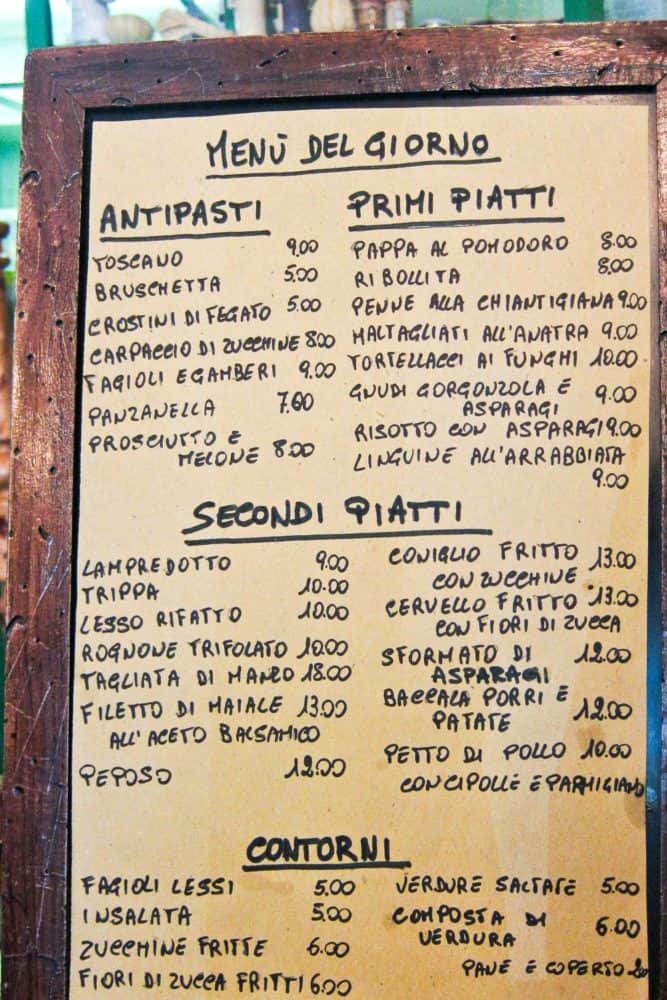 MENÙ DEL GIORNO
ANTIPASTI
TOSCANO 9.00
BRUSCHETTA 5.00
CROSTINI DI FEGATO 5.00
CARPACCIO DI ZUCCHINE 8.00
FAGIOLI E GAMBERI 9.00
PANZANELLA 7.00
PROSCIUTTO E
MELONE 8.00
PRIMI PIATTI
PAPPA AL POMODORO 8.00
RIBOLLITA 8.00
PENNE ALLA CHIANTIGIANA 9.00
MALTAGLIATI ALL'ANATRA 9.00
TORTELLACCI AI FUNGHI 10.00
GNUDI GORGONZOLA E 9.00
ASPARAGI
RISOTTO CON ASPARAGI 9.00
LINGUINE ALL'ARRABBIATA
9.00
SECONDI PIATTI
LAMPREDOTTO 9.00
TRIPPA 10.00
LESSO RIFATTO 10.00
ROGNONE TRIFOLATO 10.00
TAGLIATA DI MANZO 18.00
FILETTO DI MAIALE 13.00
ALL'ACETO BALSAMICO
PEPOSO 12.00
CONIGLIO FRITTO 13.00
CON ZUCCHINE
CERVELLO FRITTO 13.00
CON FIORI DI ZUCCA
SFORMATO DI 12.00
ASPARAGI
BACCALA PORRI E 12.00
PATATE
PETTO DI POLLO 10.00
CON CIPOLLE E PARMIGIANO
CONTORNI
FAGIOLI LESSI 5.00
INSALATA 5.00
ZUCCHINE FRITTE 6.00
FIORI DI ZUCCA FRITTI 6.00
VERDURE SALTATE 5.00
COMPOSTA DI 6.00
VERDURA
PANE E COPERTO